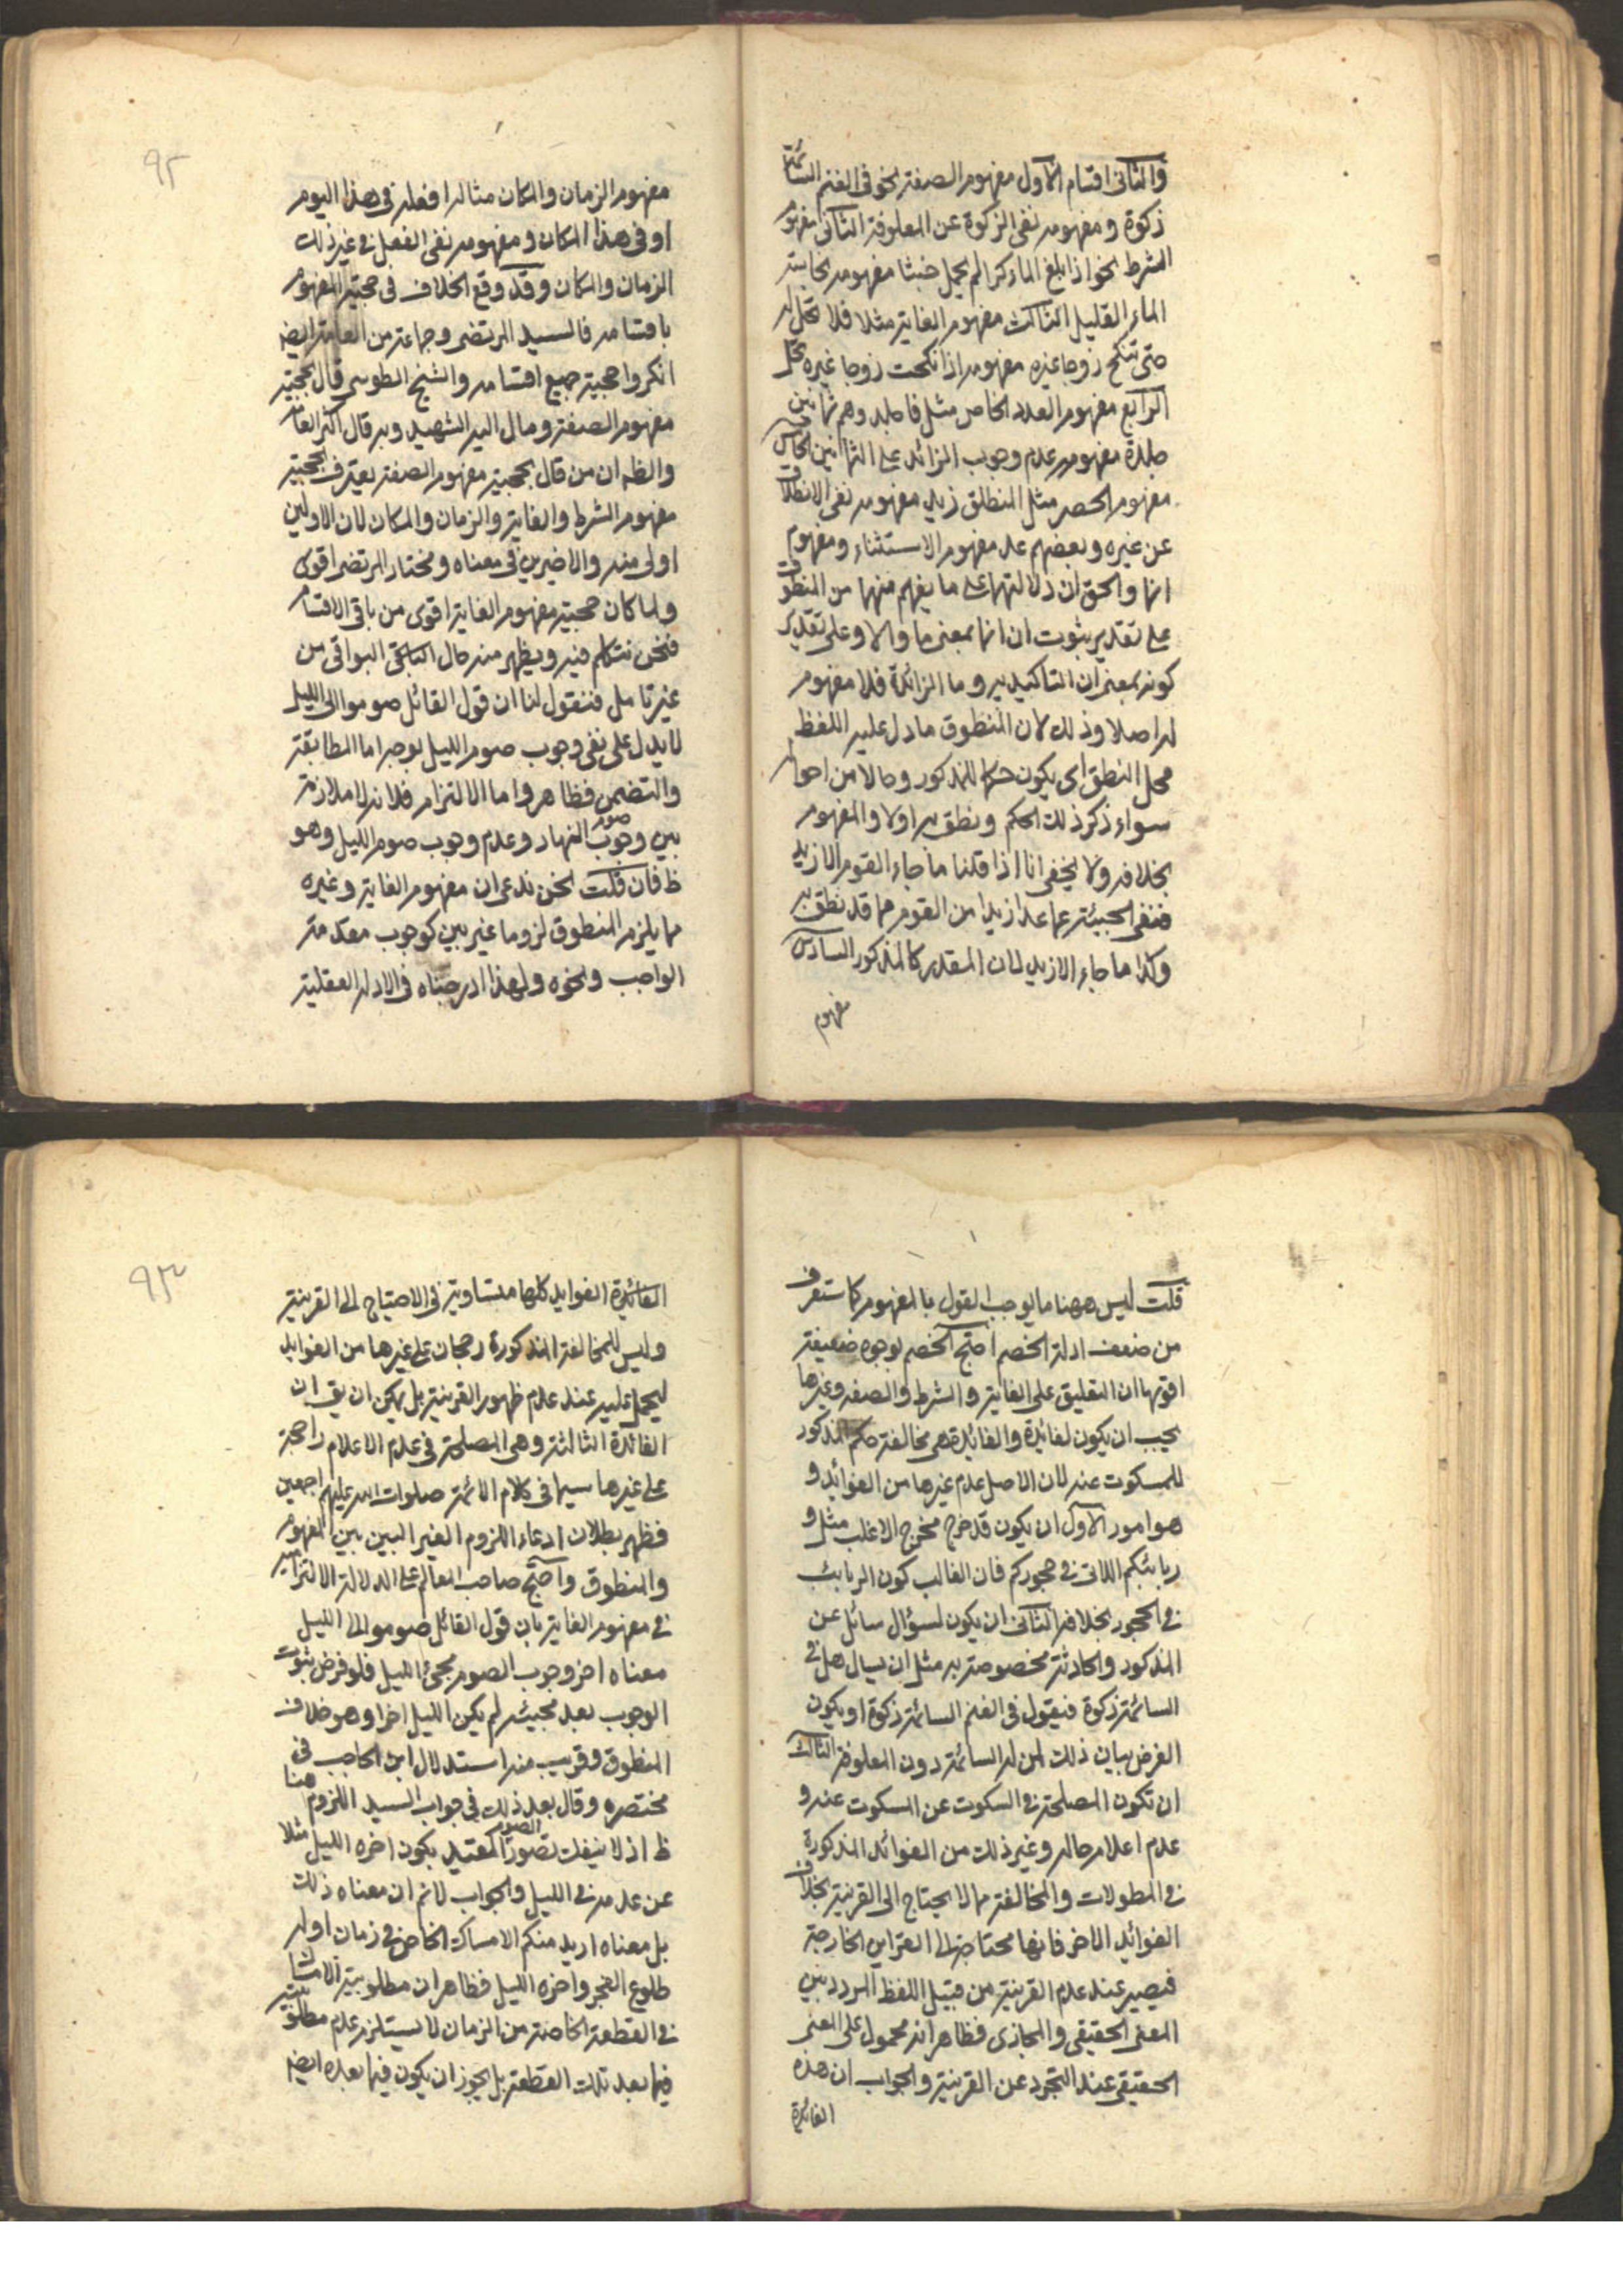 والثانی اقسام الاول مفهوم الصفة نحو فی الغنم السائمة
زکوة و مفهومه نفی الزکوة عن المعلوفة الثانی مفهوم
الشرط نحو اذا بلغ الماء کرا لم یحمل خبثا مفهومه نجاسة
الماء القلیل الثالث مفهوم الغایة مثلا فلا تحل له
حتی تنکح زوجا غیره مفهومه اذا نکحت زوجا غیره تحل
الرابع مفهوم العدد الخاص مثل فاجلدوهم ثمانین
جلدة مفهومه عدم وجوب الزائد علی الثمانین الخامس
مفهوم الحصر مثل المنطلق زید مفهومه نفی الانطلاق
عن غیره و بعضهم عد مفهوم الاستثناء و مفهوم
انما والحق ان دلالتهما علی ما یفهم منهما من المنطوق
علی تقدیر ثبوت ان انما بمعنی ما والا وعلی تقدیر
کونه بمعنی ان التاکیدیه وما الزائدة فلا مفهوم
له اصلا وذلک لان المنطوق ما دل علیه اللفظ
محل النطق ای یکون حکما للمذکور وحالا من احواله
سواء ذکر ذلک الحکم ونطق به اولا والمفهوم
بخلافه ولا یخفی انا اذا قلنا ما جاء القوم الا زید
فنفی المجیئة عما عدا زیدا من القوم مما قد نطق به
وکذا ما جاء الا زید لان المقدر کالمذکور السادس
مفهوم
۹۲
مفهوم الزمان والمکان مثاله افعله فی هذا الیوم
او فی هذا المکان و مفهومه نفی الفعل فی غیر ذلک
الزمان والمکان وقد وقع الخلاف فی حجیة المفهوم
باقسامه فالسید المرتضی وجماعة من العامة ایضا
انکروا حجیة جمیع اقسامه والشیخ الطوسی قال بحجیة
مفهوم الصفة ومال الیه الشهید وبه قال اکثر العامة
والظ ان من قال بحجیة مفهوم الصفة یعترف بحجیة
مفهوم الشرط والغایة والزمان والمکان لان الاولین
اولی منه والاخیرین فی معناه ومختار المرتضی اقوی
ولما کان حجیة مفهوم الغایة اقوی من باقی الاقسام
فنحن نتکلم فیه ویظهر منه حال الباقی البواقی من
غیر تامل فنقول لنا ان قول القائل صوموا الی اللیل
لا یدل علی نفی وجوب صوم اللیل بوجه اما المطابقة
والتضمن فظاهر واما الالتزام فلانه لا ملازمة
بین وجوب صوم النهار وعدم وجوب صوم اللیل وهو
ظ فان قلت نحن ندعی ان مفهوم الغایة وغیره
مما یلزم المنطوق لزوما غیر بین کوجوب مقدمة
الواجب ونحوه ولهذا ادرجناه فی الادلة العقلیة
قلت لیس ههنا ما یوجب القول بالمفهوم کما ستعرف
من ضعف ادلة الخصم احتج الخصم بوجوه ضعیفة
اقویها ان التعلیق علی الغایة والشرط والصفة وغیرها
یجب ان یکون لفائدة والفائدة هی مخالفة حکم المذکور
للمسکوت عنه لان الاصل عدم غیرها من الفوائد و
هو امور الاول ان یکون قد خرج مخرج الاغلب مثل و
ربائبکم اللاتی فی حجورکم فان الغالب کون الربائب
فی الحجور بخلافه الثانی ان یکون لسؤال سائل عن
المذکور والحادثة مخصوصة به مثل ان یسال هل فی
السائمة زکوة فیقول فی الغنم السائمة زکوة او یکون
الغرض بیان ذلک لمن له السائمة دون المعلوفة الثالث
ان تکون المصلحة فی السکوت عن المسکوت عنه و
عدم اعلام حاله وغیر ذلک من الفوائد المذکورة
فی المطولات والمخالفة مما لا یحتاج الی القرینة بخلاف
الفوائد الاخر فانها محتاجة الی القراین الخارجة
فیصیر عند عدم القرینة من قبیل اللفظ المردد بین
المعنی الحقیقی والمجازی فظاهر انه محمول علی المعنی
الحقیقی عند التجرد عن القرینة والجواب ان هذه
الفائدة
۹۳
الفائدة الفواید کلها متساویة فی الاحتیاج الی القرینة
ولیس للمخالفة المذکورة رجحان علی غیرها من الفواید
لیحمل علیه عند عدم ظهور القرینة بل یمکن ان یق ان
الفائدة الثالثة وهی المصلحة فی عدم الاعلام راجحة
علی غیرها سیما فی کلام الائمة صلوات الله علیهم اجمعین
فظهر بطلان ادعاء اللزوم الغیر البین بین المفهوم
والمنطوق واحتج صاحب المعالم علی الدلالة الالتزامیة
فی مفهوم الغایة بان قول القائل صوموا الی اللیل
معناه اخر وجوب الصوم مجئ اللیل فلو فرض ثبوت
الوجوب بعد مجیئه لم یکن اللیل اخرا وهو خلاف
المنطوق وقریب منه استدلال ابن الحاجب فی
مختصره وقال بعد ذلک فی جواب السید اللزوم هنا
ظ اذ لا ینفک تصور الصوم المقید بکون اخره اللیل مثلا
عن عدمه فی اللیل والجواب لا نم ان معناه ذلک
بل معناه ارید منکم الامساک الخاص فی زمان اوله
طلوع الفجر واخره اللیل فظاهر ان مطلوبیة الامساک
فی القطعة الخاصة من الزمان لا یستلزم عدم مطلوبیته
فیما بعد تلک القطعة بل یجوز ان یکون فیما بعده ایضا